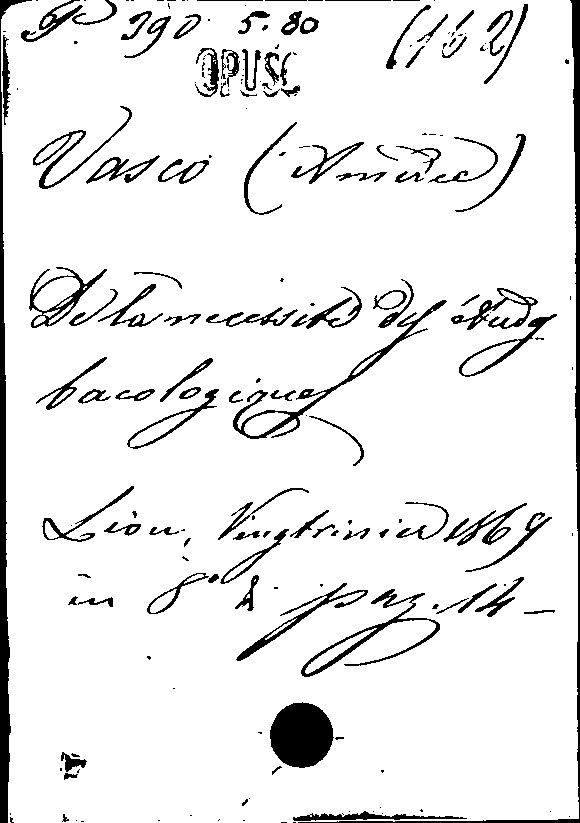 P. 390 5.80 (162)
OPUSC
Vasco (Amédée)
De la necessité des études
bacologiques
Lion, Vingtrinier 1869
in 8° di pag. 14 -